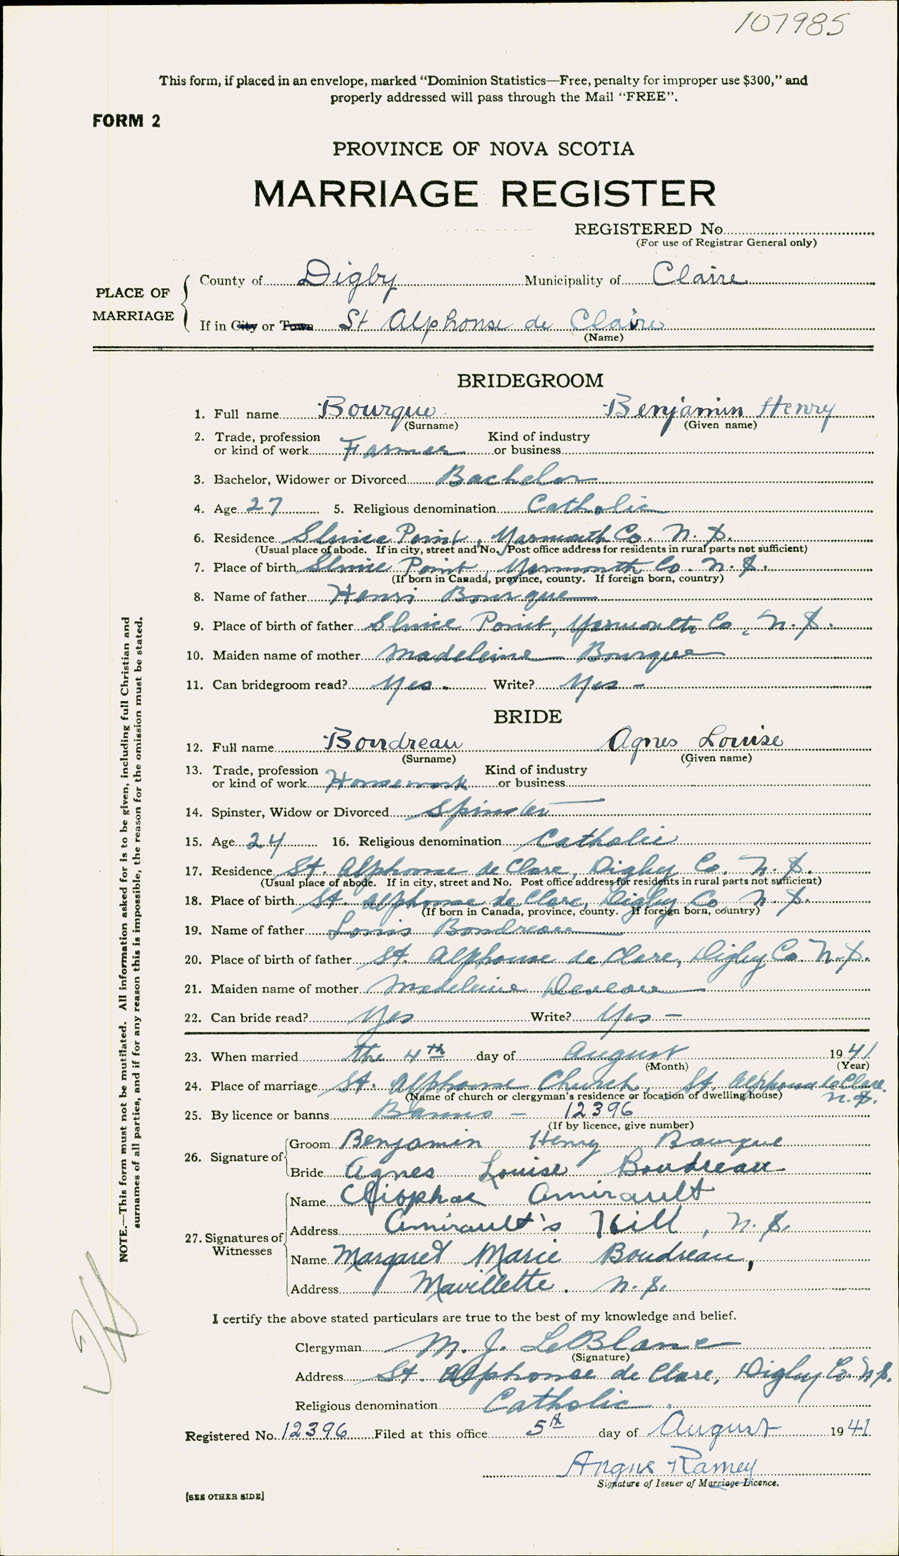 107985
This form, if placed in an envelope, marked “Dominion Statistics—Free, penalty for improper use $300,” and
properly addressed will pass through the Mail “FREE”.
FORM 2
PROVINCE OF NOVA SCOTIA
MARRIAGE REGISTER
REGISTERED No.
(For use of Registrar General only)
PLACE OF MARRIAGE
County of Digby Municipality of Claire
If in City or Town St Alphonse de Claire
(Name)
BRIDEGROOM
1. Full name Bourque Benjamin Henry
(Surname) (Given name)
2. Trade, profession Kind of industry
or kind of work Farmer or business
3. Bachelor, Widower or Divorced Bachelor
4. Age 27 5. Religious denomination Catholic
6. Residence Sluice Point, Yarmouth Co. N.S.
(Usual place of abode. If in city, street and No. Post office address for residents in rural parts not sufficient)
7. Place of birth Sluice Point, Yarmouth Co. N.S.
(If born in Canada, province, county. If foreign born, country)
8. Name of father Henri Bourque
9. Place of birth of father Sluice Point, Yarmouth Co, N.S.
10. Maiden name of mother Madeleine Bourque
11. Can bridegroom read? Yes. Write? Yes -
BRIDE
12. Full name Boudreau Agnes Louise
(Surname) (Given name)
13. Trade, profession Kind of industry
or kind of work Housework or business
14. Spinster, Widow or Divorced Spinster
15. Age 24 16. Religious denomination Catholic
17. Residence St. Alphonse de Clare, Digby Co. N.S.
(Usual place of abode. If in city, street and No. Post office address for residents in rural parts not sufficient)
18. Place of birth St. Alphonse de Clare, Digby Co N.S.
(If born in Canada, province, county. If foreign born, country)
19. Name of father Louis Boudreau
20. Place of birth of father St. Alphonse de Clare, Digby Co. N.S.
21. Maiden name of mother Madeleine Deveau
22. Can bride read? Yes Write? Yes -
23. When married the 4th day of August 1941
(Month) (Year)
24. Place of marriage St. Alphonse Church, St. Alphonse de Clare
(Name of church or clergyman's residence or location of dwelling house) N.S.
25. By licence or banns Banns - 12396
(If by licence, give number)
26. Signature of
Groom Benjamin Henry Bourque
Bride Agnes Louise Boudreau
27. Signatures of Witnesses
Name Cliophas Amirault
Address Amirault's Hill, N.S.
Name Margaret Marie Boudreau,
Address Mavillette. N.S.
I certify the above stated particulars are true to the best of my knowledge and belief.
Clergyman M. J. LeBlanc
(Signature)
Address St. Alphonse de Clare, Digby Co. N.S.
Religious denomination Catholic.
Registered No. 12396 Filed at this office 5th day of August 1941
Angus Ramey
Signature of Issuer of Marriage Licence.
[SEE OTHER SIDE]
NOTE.—This form must not be mutilated. All information asked for is to be given, including full Christian and
surnames of all parties, and if for any reason this is impossible, the reason for the omission must be stated.